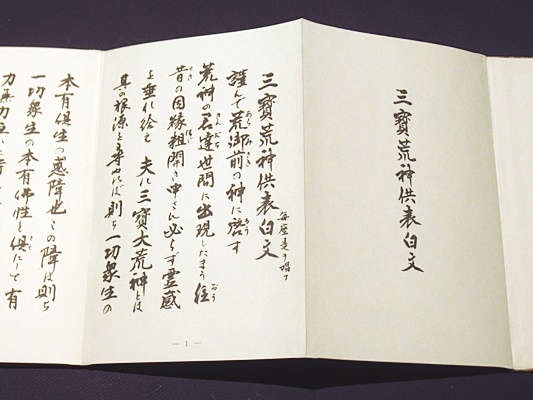 三寳荒神供表白文
三寳荒神供表白文
毎座是ヲ唱フ
謹んで荒御前の神に啓す
荒神の君達世間に出現したまう往
昔の因縁粗開き申さん必らず霊感
を垂れ給え 夫れ三寳大荒神とは
其の根源を尋ぬれば則ち一切衆生の
— 1 —
本有倶生の惑障也この障は則ち
一切衆生の本有佛性と倶にして有
力無力互